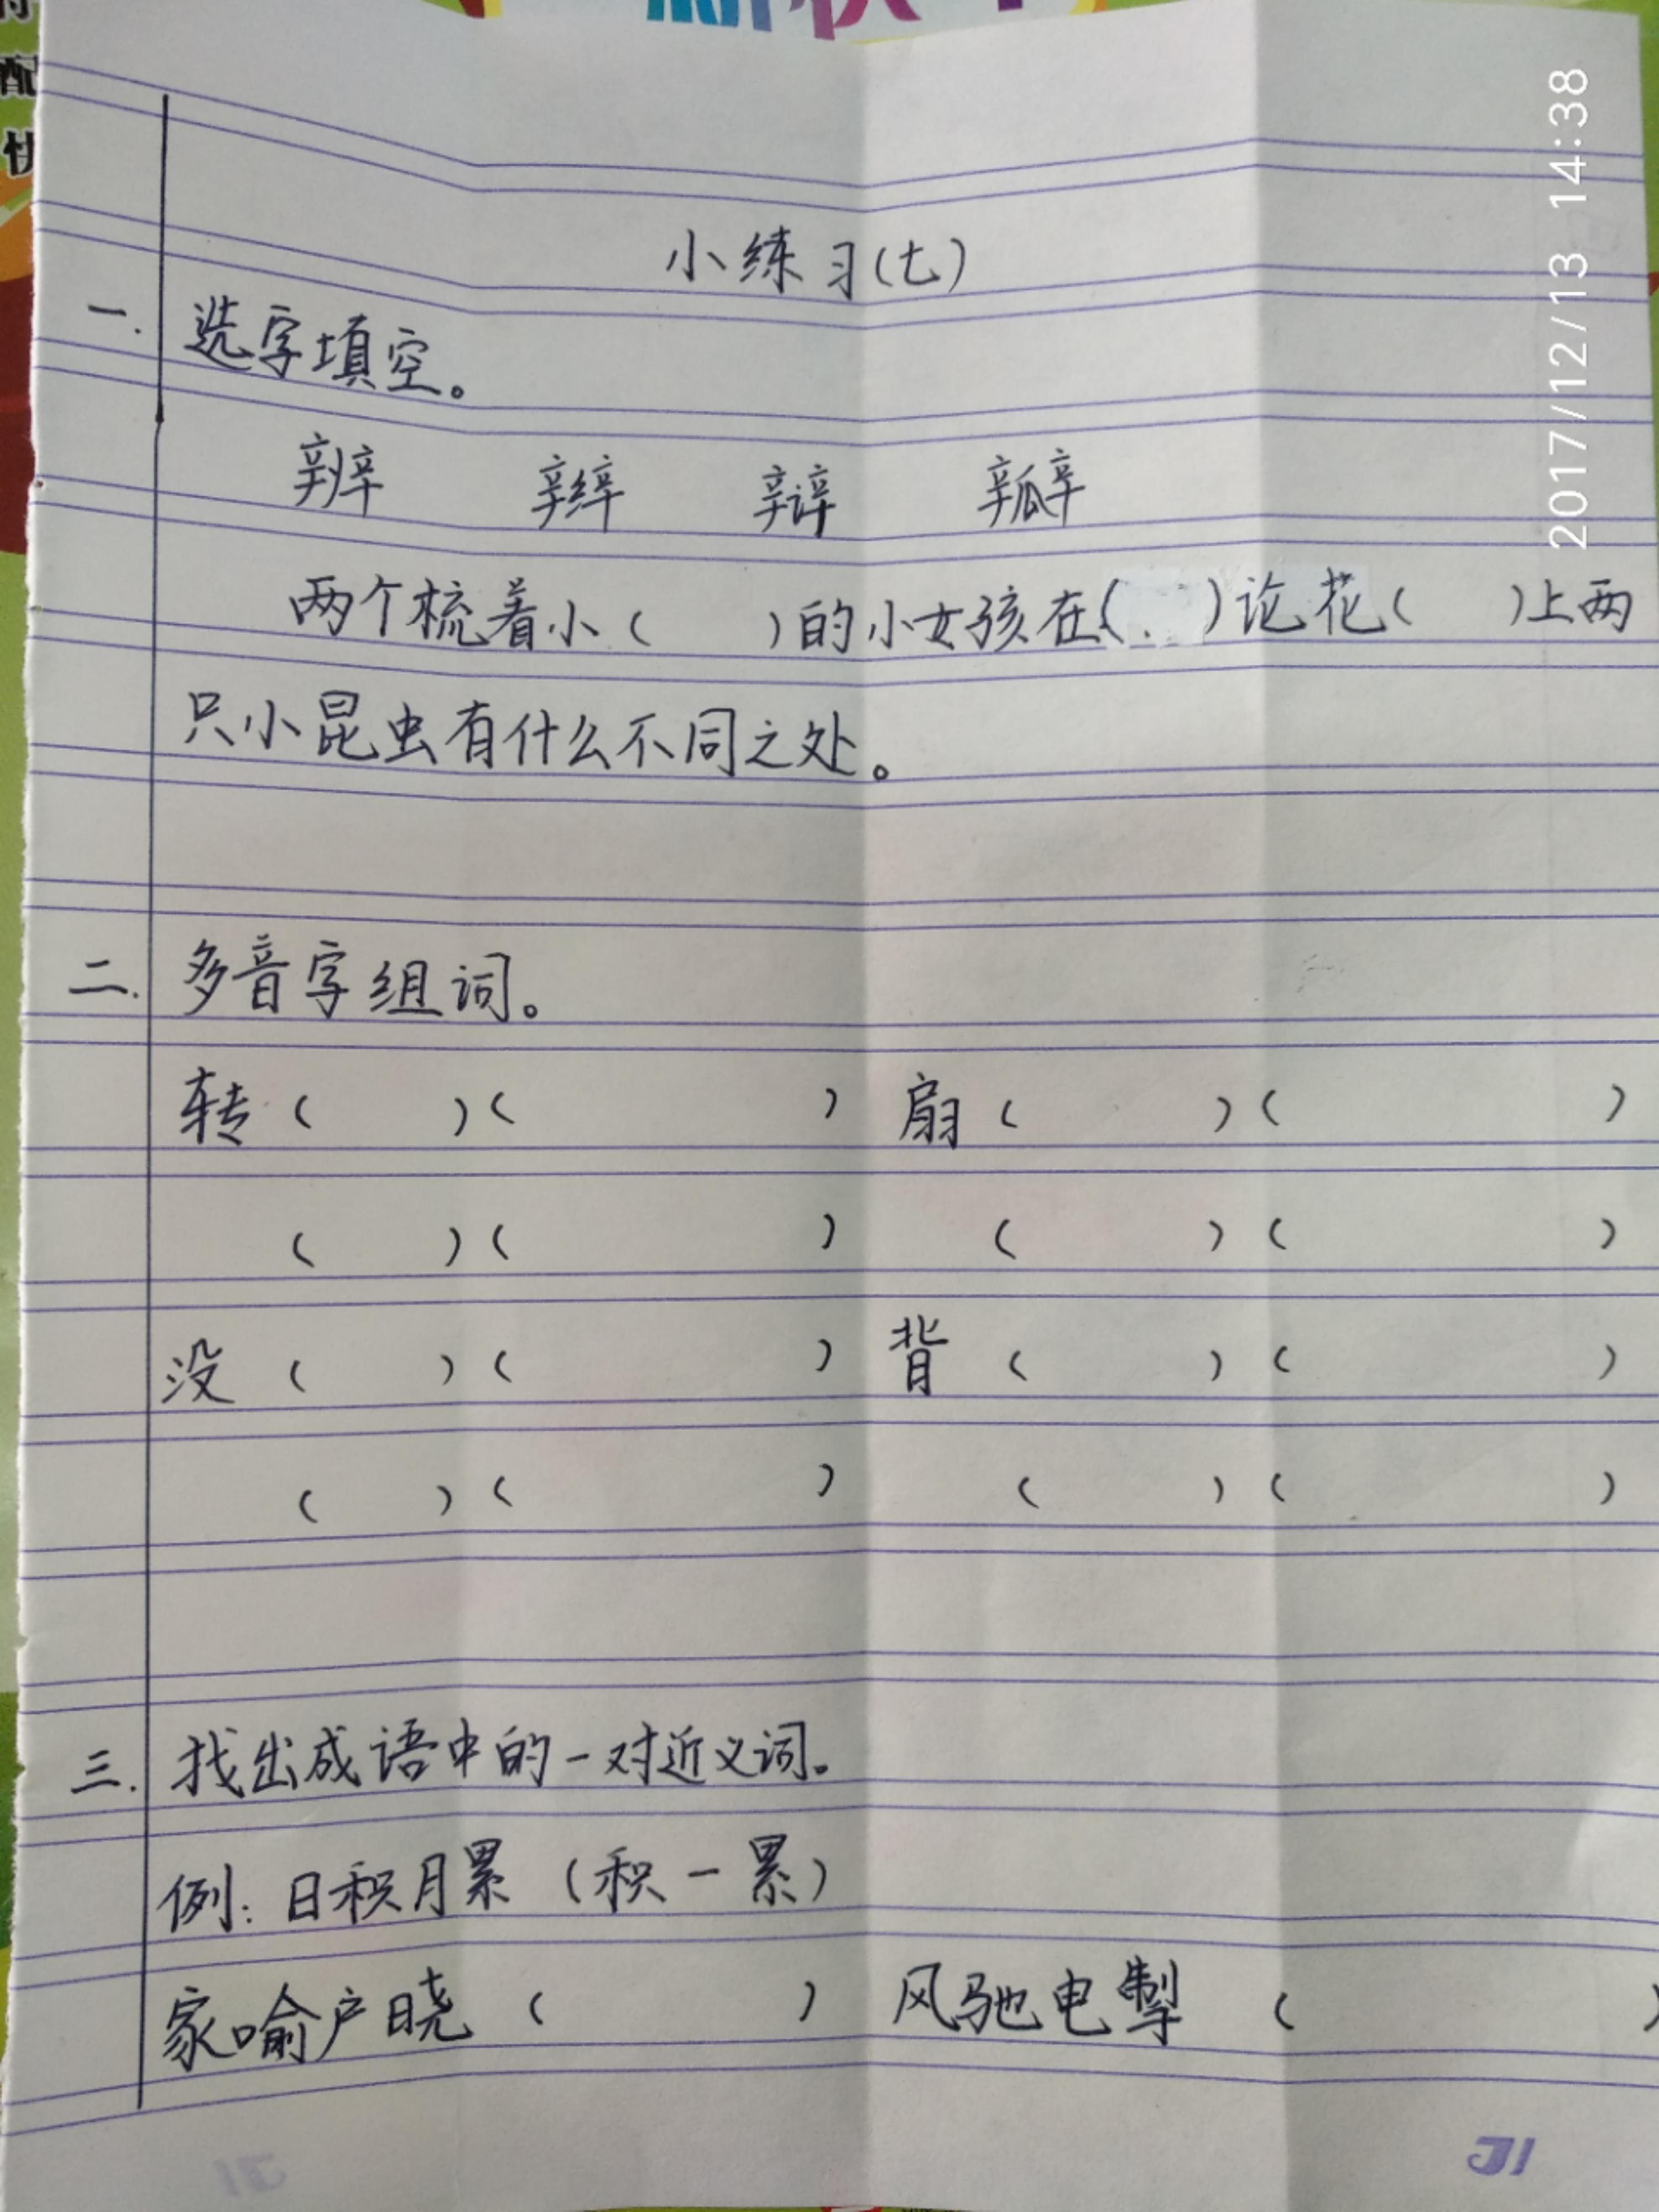 配
快
2017/12/13 14:38
小练习(七)
一. 选字填空。
辨 辫 辩 瓣
两个梳着小( )的小女孩在( )论花( )上两
只小昆虫有什么不同之处。
二. 多音字组词。
转 ( )( ) 扇 ( )( )
( )( ) ( )( )
没 ( )( ) 背 ( )( )
( )( ) ( )( )
三. 找出成语中的一对近义词。
例: 日积月累 (积 - 累)
家喻户晓 ( ) 风驰电掣 ( )